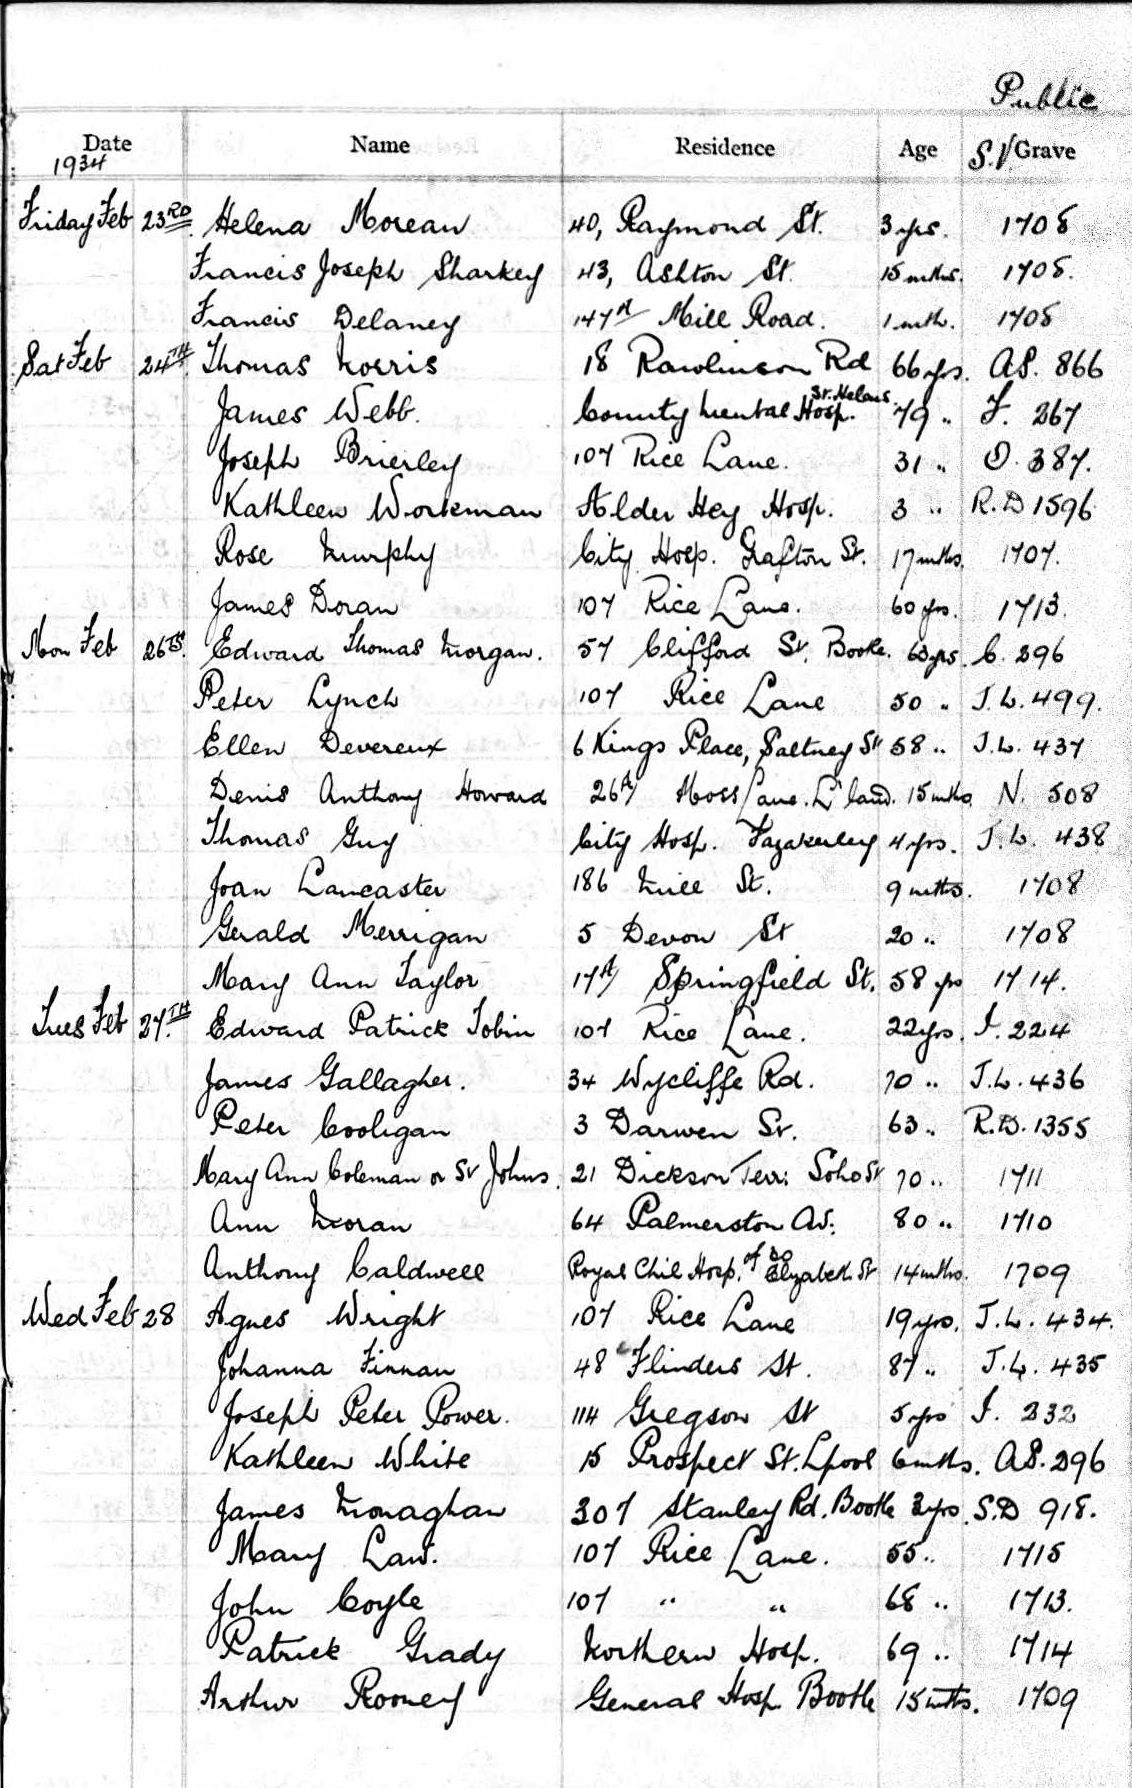 Public
Date Name Residence Age S.V. Grave
1934
Friday Feb 23RD Helena Morean 40, Raymond St. 3 yrs. 1708
Francis Joseph Sharkey 43, Ashton St. 15 mths. 1708.
Francis Delaney 147A Mill Road. 1 mth. 1708
Sat Feb 24TH Thomas Norris 18 Rawlinson Rd 66 yrs. AS. 866
James Webb. County Mental Hosp. St. Helens. 79 " F. 267
Joseph Brierley 107 Rice Lane. 31 " O. 387.
Kathleen Workman Alder Hey Hosp. 3 " R.D 1596
Rose Murphy City Hosp. Grafton St. 17 mths. 1707.
James Doran 107 Rice Lane. 60 yrs. 1713.
Mon Feb 26TH. Edward Thomas Morgan. 57 Clifford St. Bootle. 63 yrs. C. 296
Peter Lynch 107 Rice Lane 50 " J.L. 499.
Ellen Devereux 6 Kings Place, Saltney St 58 " J.L. 437
Denis Anthony Howard 26A Moss Lane. L'land. 15 mths. N. 508
Thomas Guy City Hosp. Fazakerley 4 yrs. J.L. 438
Joan Lancaster 186 Mill St. 9 mths. 1708
Gerald Merrigan 5 Devon St 20 " 1708
Mary Ann Taylor 17A Springfield St. 58 yrs 1714.
Tues Feb 27.TH Edward Patrick Tobin 107 Rice Lane. 22 yrs. I. 224
James Gallagher. 34 Wycliffe Rd. 70 " J.L. 436
Peter Cooligan 3 Darwen St. 63 " R.D. 1355
Mary Ann Coleman or St Johns. 21 Dickson Terr: Soho St 70 " 1711
Ann Moran 64 Palmerston Av: 80 " 1710
Anthony Caldwell Royal Chil Hosp. of 20 Elizabeth St 14 mths. 1709
Wed Feb 28 Agnes Wright 107 Rice Lane 19 yrs. J.L. 434.
Johanna Finnan 48 Flinders St. 87 " J.L. 435
Joseph Peter Power. 114 Gregson St 5 yrs I. 232
Kathleen White 15 Prospect St. Lpool 6 mths. AS. 296
James Monaghan 307 Stanley Rd. Bootle 3 yrs. S.D 918.
Mary Law. 107 Rice Lane. 55 " 1715
John Coyle 107 " " 68 " 1713.
Patrick Grady Northern Hosp. 69 " 1714
Arthur Rooney General Hosp. Bootle 15 mths. 1709